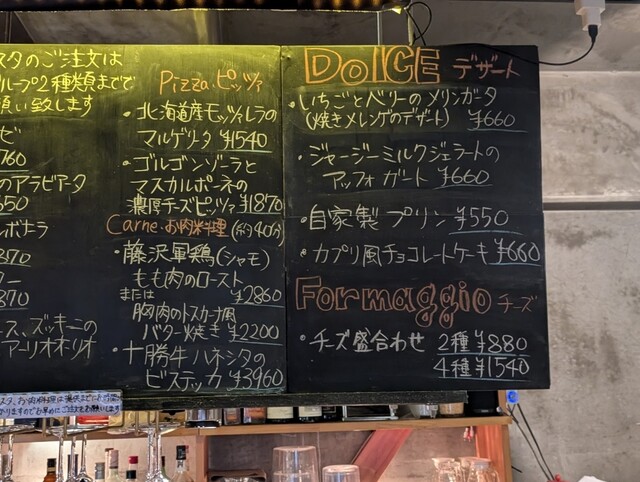 スタのご注文は
ループ2種類までで
願い致します
ビ
760
のアラビアータ
650
ボナラ
870
870
ース、ズッキーニの
アーリオオーリオ
Pizza・ピッツァ
・北海道産モッツァレラの
マルゲリータ ¥1540
・ゴルゴンゾーラと
マスカルポーネの
濃厚チーズピッツァ ¥1870
Carne・お肉料理 (約40分)
・藤沢軍鶏(シャモ)
もも肉のロースト
または ¥2860
胸肉のトスカーナ風
バター焼き ¥2200
・十勝牛ハネシタの
ビステッカ ¥3960
DOLCE デザート
・いちごとベリーのメリンガータ
(焼きメレンゲのデザート) ¥660
・ジャージーミルクジェラートの
アッフォガート ¥660
・自家製プリン ¥550
・カプリ風チョコレートケーキ ¥660
Formaggio チーズ
・チーズ盛合わせ 2種 ¥880
4種 ¥1540